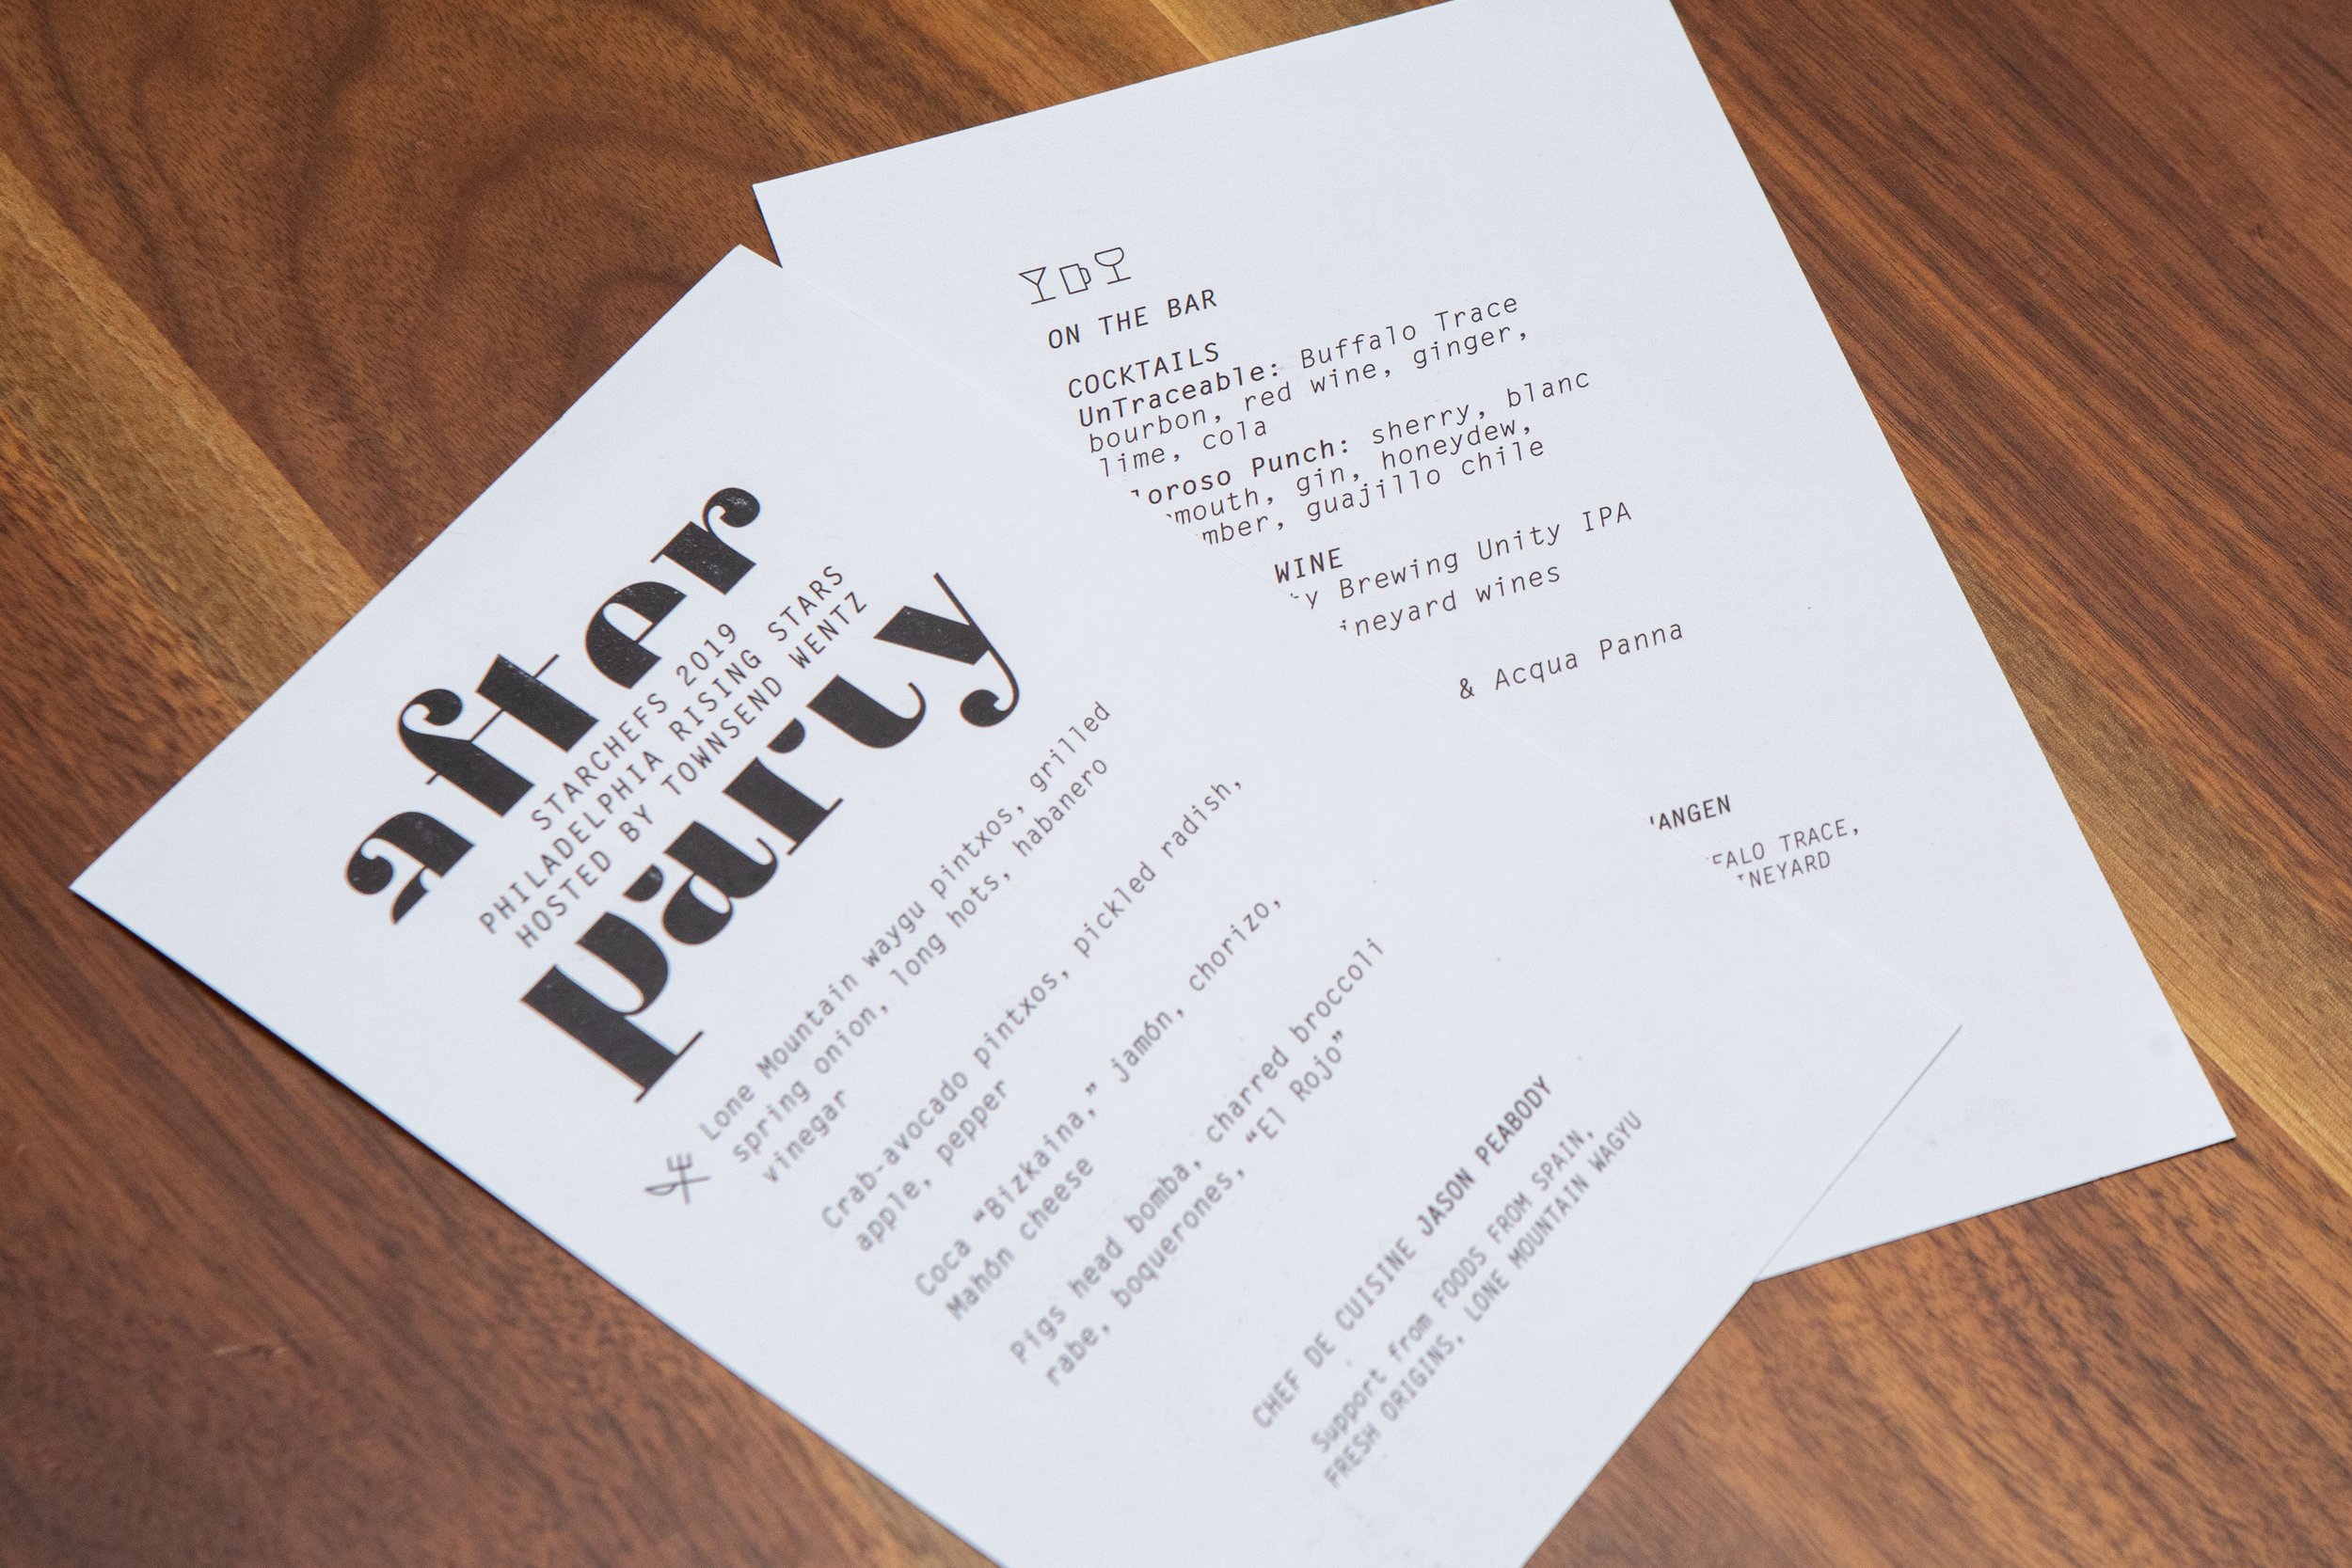 after
STARCHEFS 2019
PHILADELPHIA RISING STARS
HOSTED BY TOWNSEND WENTZ
party
Lone Mountain waygu pintxos, grilled
spring onion, long hots, habanero
vinegar
Crab-avocado pintxos, pickled radish,
apple, pepper
Coca “Bizkaina,” jamón, chorizo,
Mahón cheese
Pigs head bomba, charred broccoli
rabe, boquerones, “El Rojo”
CHEF DE CUISINE JASON PEABODY
Support from FOODS FROM SPAIN,
FRESH ORIGINS, LONE MOUNTAIN WAGYU
ON THE BAR
COCKTAILS
UnTraceable: Buffalo Trace
bourbon, red wine, ginger,
lime, cola
loroso Punch: sherry, blanc
mouth, gin, honeydew,
mber, guajillo chile
WINE
ty Brewing Unity IPA
ineyard wines
& Acqua Panna
ANGEN
FALO TRACE,
INEYARD